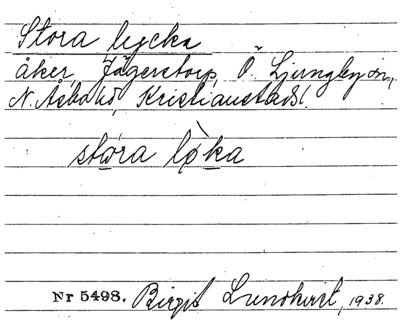 Stora lycka
åker, Jägerstorp, Ö. Ljungby sn,
N. Åsbo hd, Kristianstads l.
stóra lø̀ka
Nr 5498. Birgit Lundkvist, 1938.